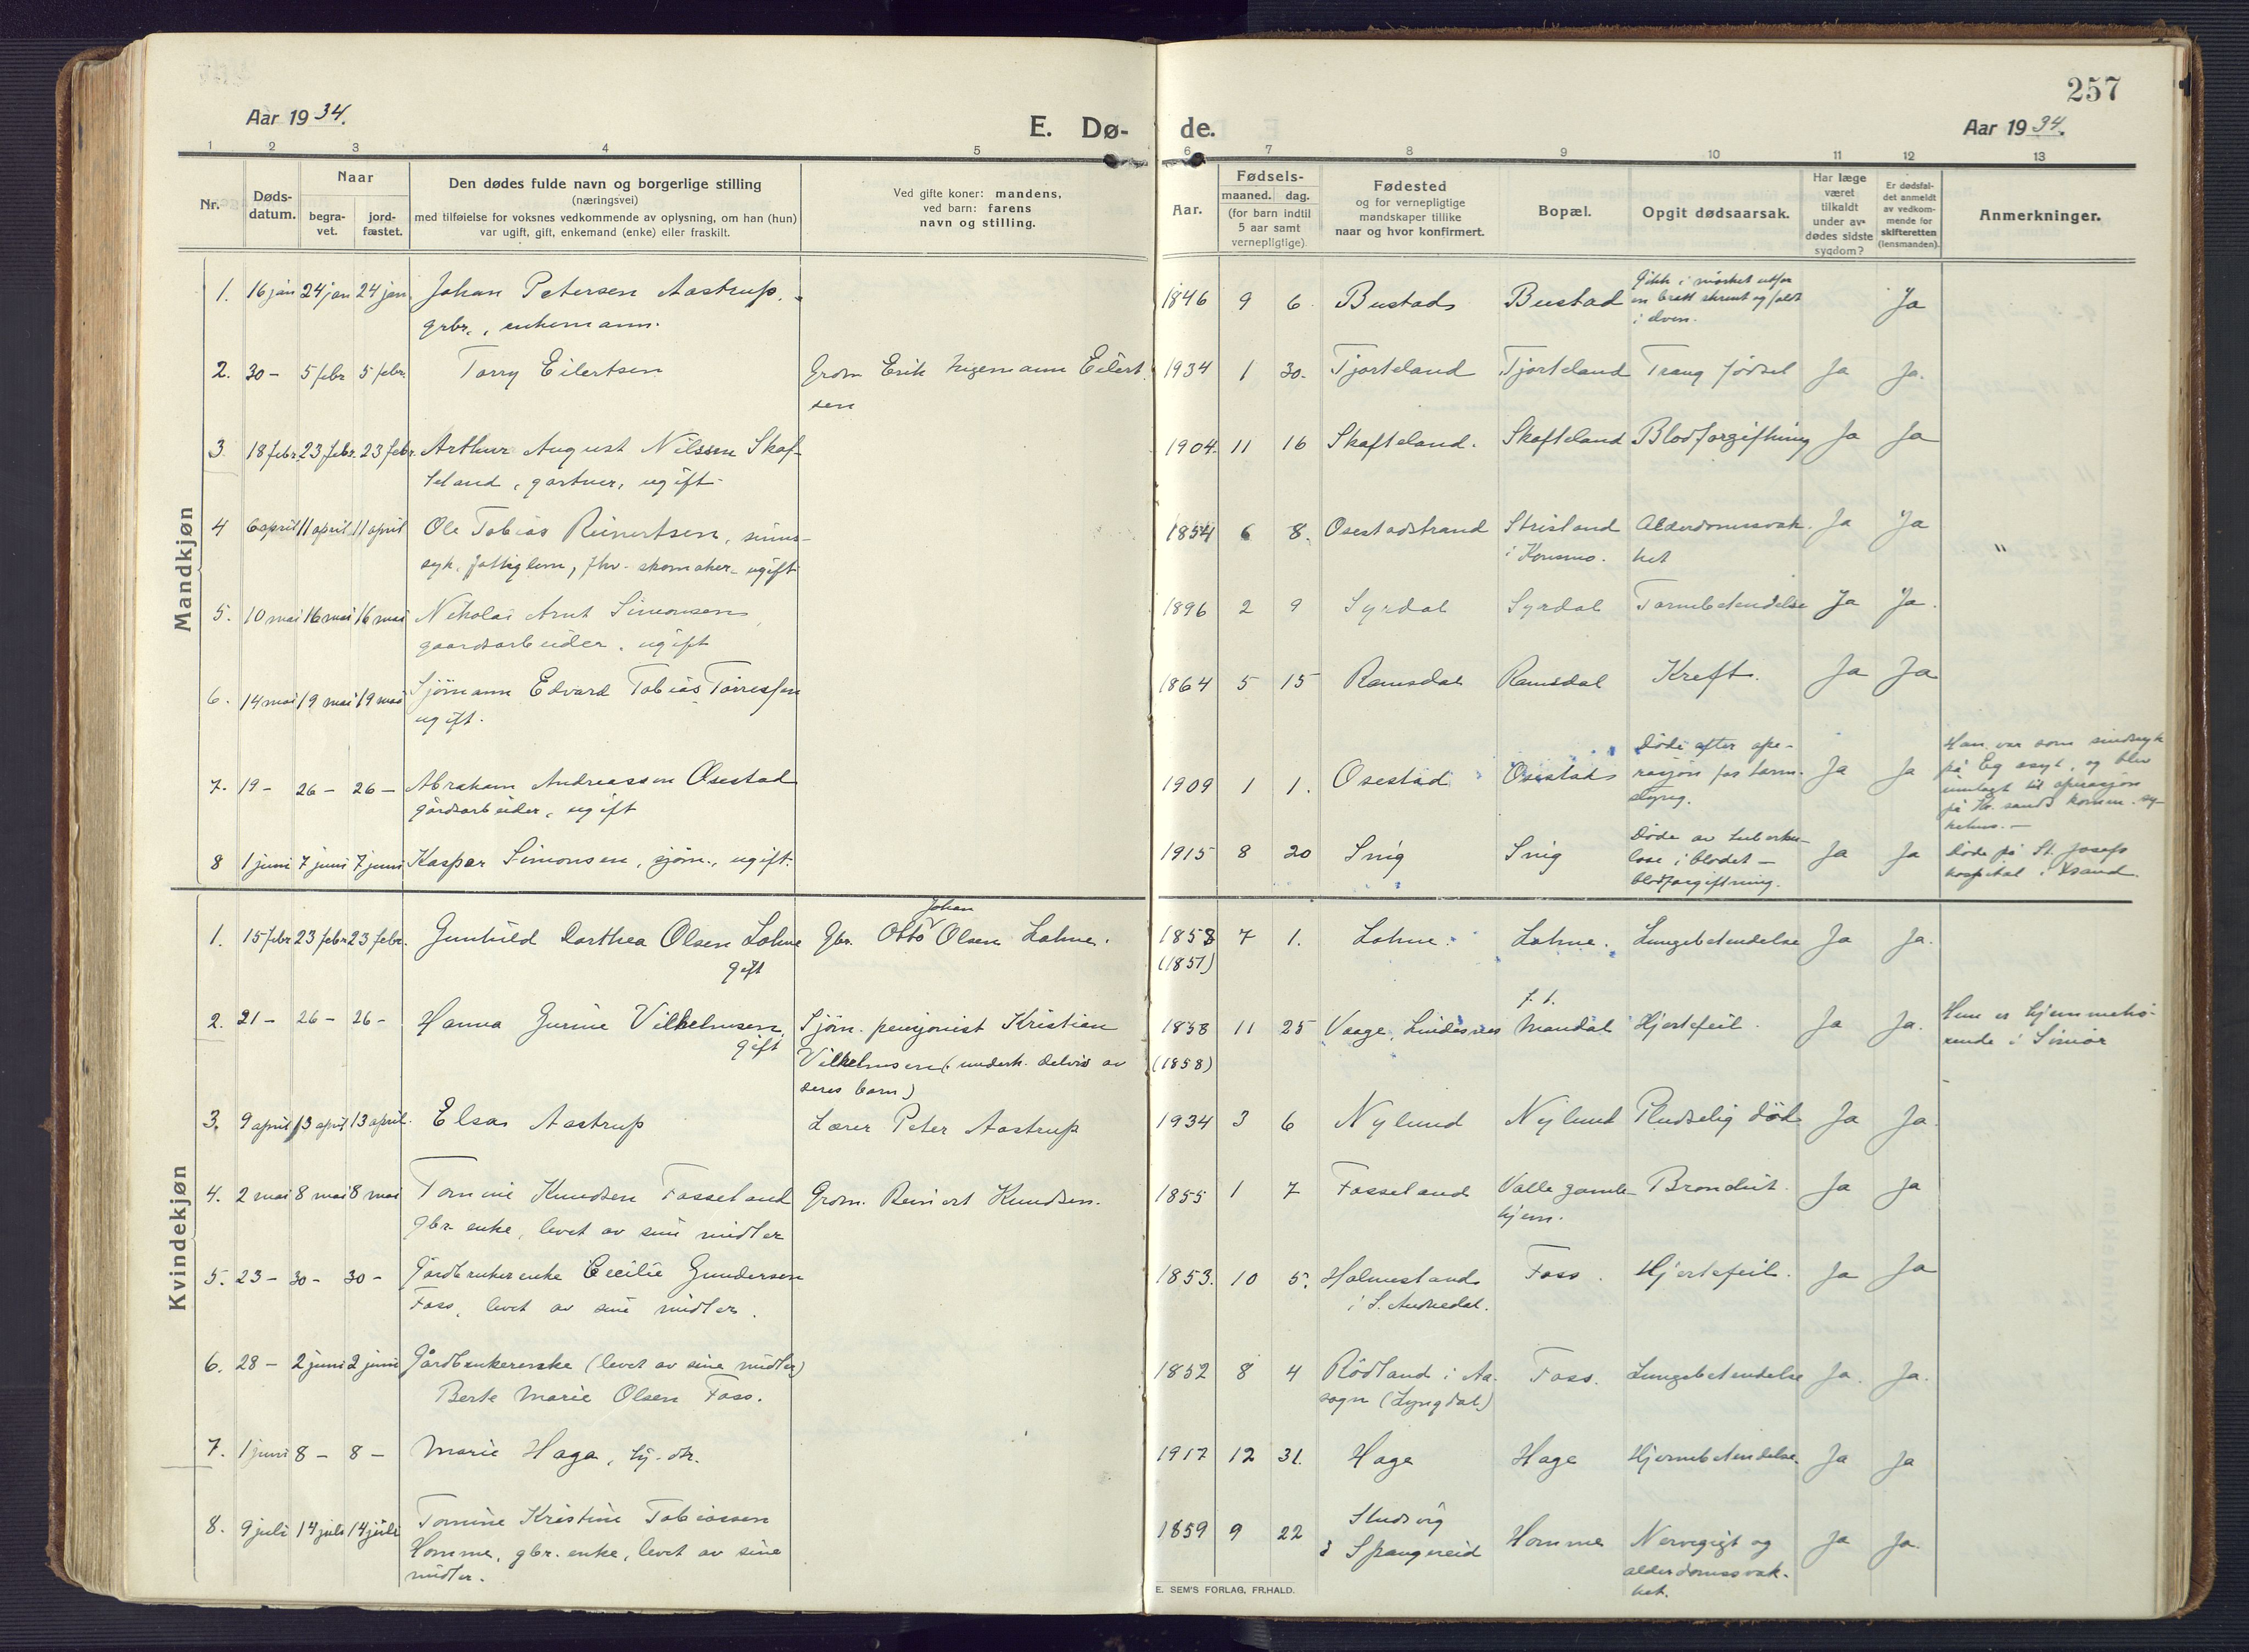 257
Aar 1934.
E. Dø-
de.
Aar 1934.
1 2 3 4 5 6 7 8 9 10 11 12 13
Nr.
Døds-
datum.
Naar
begra-
vet.
jord-
fæstet.
Den dødes fulde navn og borgerlige stilling
(næringsvei)
med tilføielse for voksnes vedkommende av oplysning, om han (hun)
var ugift, gift, enkemand (enke) eller fraskilt.
Ved gifte koner: mandens,
ved barn: farens
navn og stilling.
Aar.
Fødsels-
maaned. dag.
(for barn indtil
5 aar samt
vernepligtige)
Fødested
og for vernepligtige
mandskaper tillike
naar og hvor konfirmert.
Bopæl.
Opgit dødsaarsak.
Har læge
været
tilkaldt
under av-
dødes sidste
sygdom?
Er dødsfal-
det anmeldt
av vedkom-
mende for
skifteretten
(lensmanden).
Anmerkninger.
Mandkjøn
1. 16 jan 24 jan 24 jan. Johan Petersen Aastrup, 1846 9 6 Bustad Bustad Gikk i mørket utfor Ja
grbr., enkemann. en bratt skrent og faldt
i elven.
2. 30 - 5 febr 5 febr. Torry Eilertsen Grdm Erik Eilert 1934 1 30. Tjorteland Tjorteland Trang fødsel Ja Ja.
sen
3. 18 febr. 23 febr. 23 febr. Arthur August Nilssen Skaf- 1904. 11 16 Skafteland. Skafteland Blodforgiftning Ja Ja
teland, gartner, ugift
4 6 april 11 april 11 april Ole Tobias Reinertsen, sinns- 1854 6 8. Osestadstrand Strisland Alderdomssvak- Ja Ja "
syk, fattiglem, fhv. skomaker - ugift i Konsmo. het
5. 10 mai 16 mai 16 mai Nikolai Arnt Simonsen, 1896 2 9 Syrdal Syrdal Tarmbetendelse Ja Ja.
gaardsarbeider, ugift
6. 14 mai 19 mai 19 mai Sjømann Edvard Tobias Torressen 1864 5 15 Ramsdal Ramsdal Kreft. Ja Ja
ugift.
7. 19 - 26 - 26 - Abraham Andreassen Osestad 1909 1 1. Osestad Osestad Døde efter ope- Ja Ja Han var som sindssyk
gårdsarbeider, ugift rasjon for tarm- på Eg asyl, og blev
slyng. innlagt til operasjon
på Kr.sands komm. sy-
kehus. -
8 1 juni 7 juni 7 juni Kaspar Simonsen, sjøm., ugift. 1915 8 20 Snig Snig Døde av tuberku- Ja Ja Døde på St. Josefs
lose i blodet - hospital i Krsand.
blodforgiftning.
Kvindekjøn
1. 15 febr 23 febr 23 febr. Gunhild Dorthea Olsen Lohne Gbr. Otto Johan Olsen Lohne. 1858 7 1. Lohne. Lohne. Lungebetendelse Ja Ja.
gift (1857)
2. 21 - 26 - 26 - Hanna Gurine Vilhelmsen, Sjøm. pensjonist Kristian 1858 11 25 Vaage, Lindesnes f. t. Mandal Hjertefeil. Ja Ja. Hun er hjemmehø-
gift Vilhelmsen (underh. delvis av (1858) rende i
deres barn)
3. 9 april 13 april 13 april. Elsa Aastrup Lærer Peter Aastrup 1934 3 6 Nylund Nylund Pludselig død Ja Ja.
4. 2 mai 8 mai 8 mai Tomine Knudsen Fosseland Grdm. Reinert Knudsen. 1855 1 7 Fosseland Valle gamle- Bronchit. Ja Ja
gbr. enke, levet av sine midler hjem.
5. 23 - 30 - 30 - Gårdbrukerenke Cecilie Gundersen 1853. 10 5. Holmesland Foss. Hjertefeil. Ja Ja
Foss, levet av sine midler. i S. Audnedal.
6. 28 - 2 juni 2 juni Gårdbrukerenke (levet av sine midler) 1852 8 4 Rødland i Aa- Foss. Lungebetendelse Ja. Ja.
Berte Marie Olsen Foss. sogn (Lyngdal)
7. 1 juni 8 - 8 - Marie Haga, hj. dtr. 1917 12 31. Hage Hage Hjernebetendelse. Ja Ja
8. 9 juli 14 juli 14 juli Tomine Kristine Tobiassen 1859 9 22 Studvig Homme Nervegigt og Ja Ja.
Homme, gbr. enke, levet av sine i Spangereid alderdomssvak-
midler. het.
E. SEM'S FORLAG, FR.HALD.